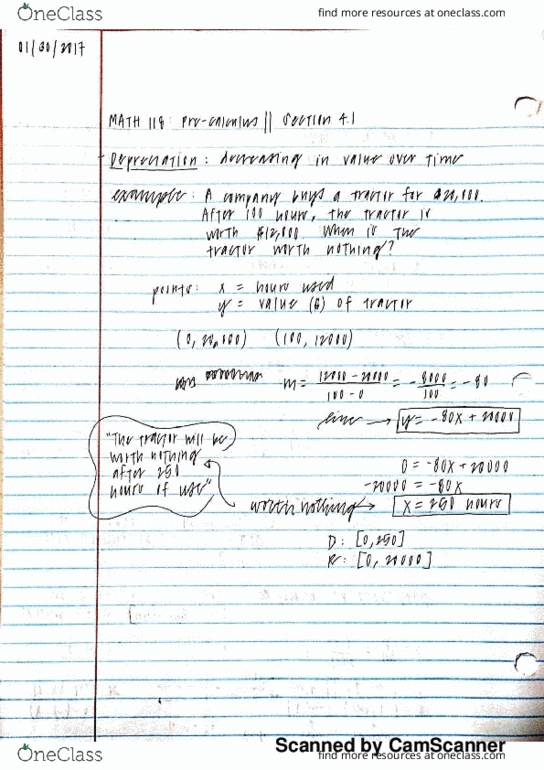 OneClass
find more resources at oneclass.com
01/30/2017
MATH 118: Pre-calculus || Section 4.1
Depreciation: decreasing in value over time
example: A company buys a tractor for $20,000.
After 100 hours, the tractor is
worth $12,000. When is the
tractor worth nothing?
points: x = hours used
y = value ($) of tractor
(0, 20,000) (100, 12000)
m = 12000 - 20000 / 100 - 0 = - 8000 / 100 = -80
line → y = -80x + 20000
"The tractor will be
worth nothing
after 250
hours of use"
0 = -80x + 20000
-20000 = -80x
worth nothing → x = 250 hours
D: [0, 250]
R: [0, 20000]
Scanned by CamScanner
OneClass
find more resources at oneclass.com